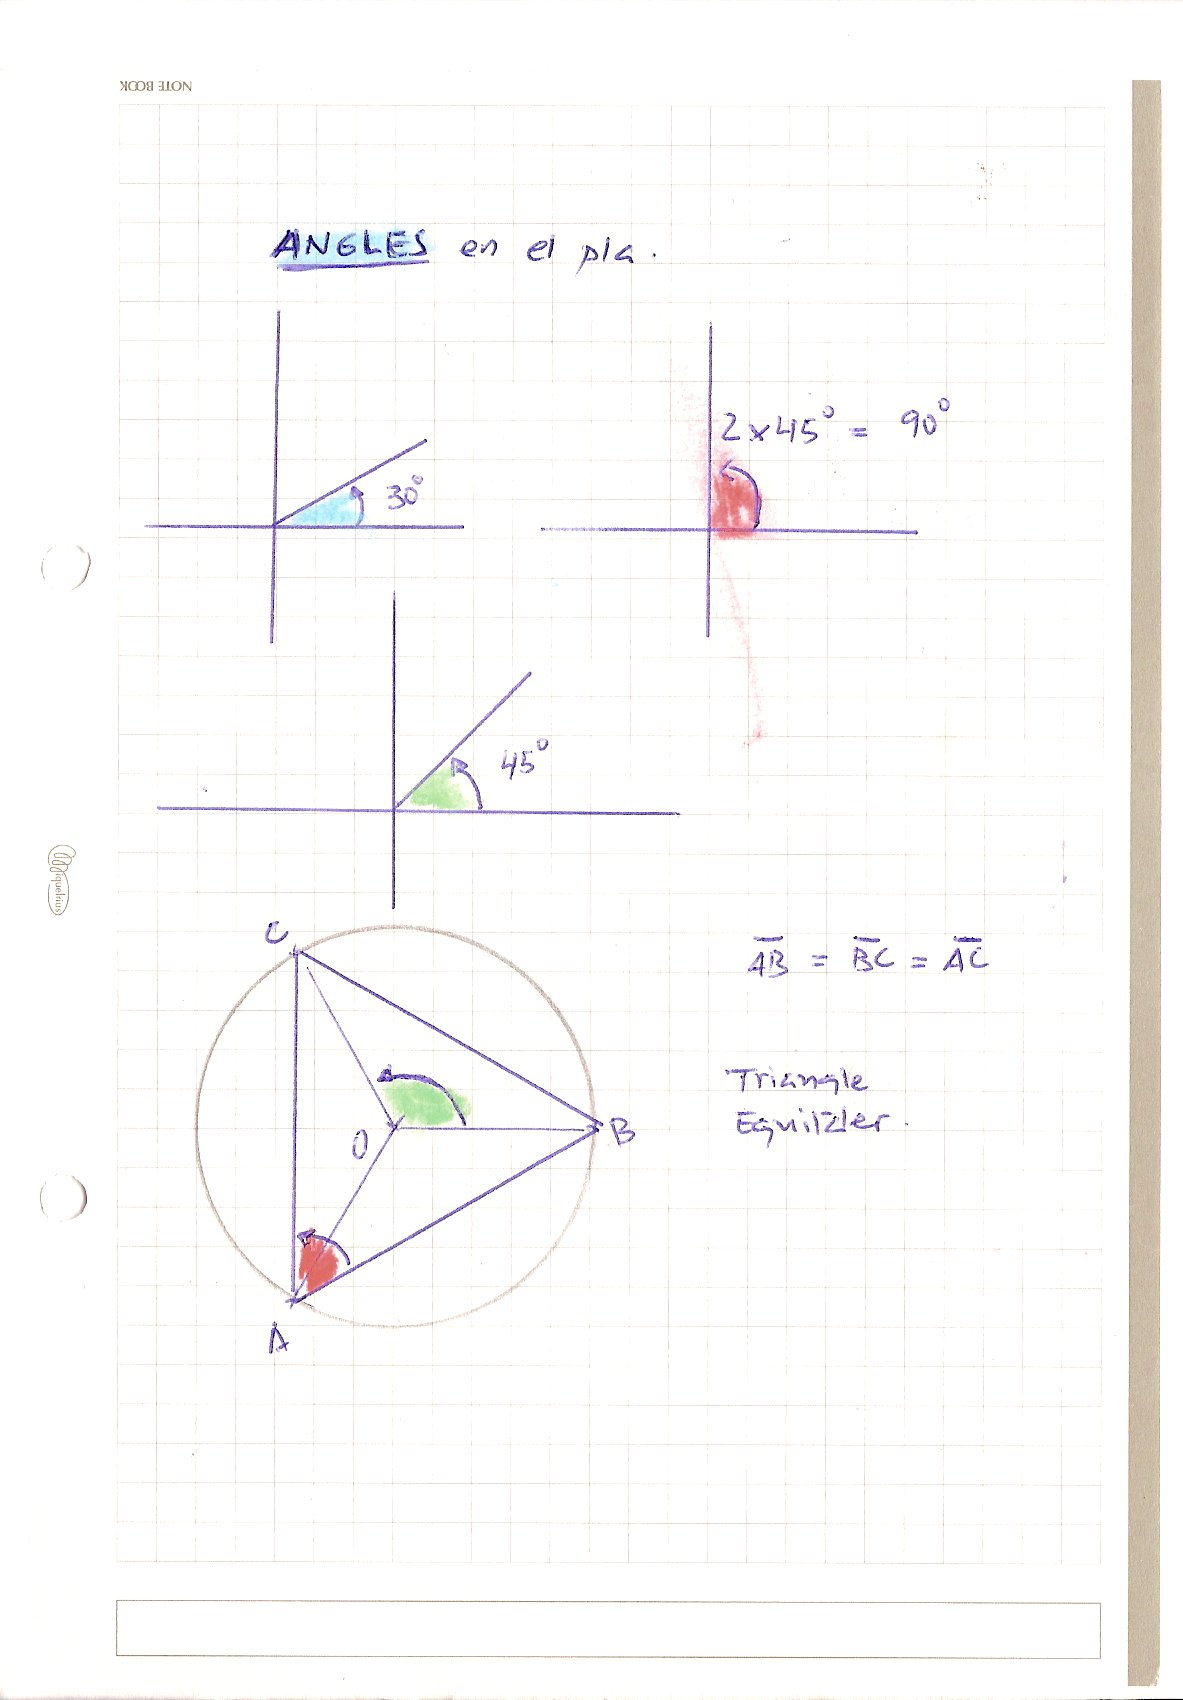 NOTE BOOK
ANGLES en el pla.
30°
2 x 45° = 90°
45°
miquelrius
C
A̅B̅ = B̅C̅ = A̅C̅
Triangle
Equilàter.
O
B
A